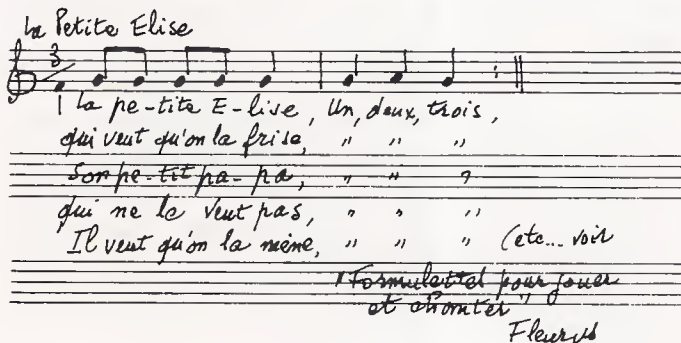 La Petite Elise
3
La pe-tite E-lise, Un, deux, trois,
qui veut qu'on la frise, " " "
Son pe-tit pa-pa, " " "
qui ne le veut pas, " " "
Il veut qu'on la mène, " " " (etc... voir
"Formulettes pour jouer
et chanter"
Fleurus